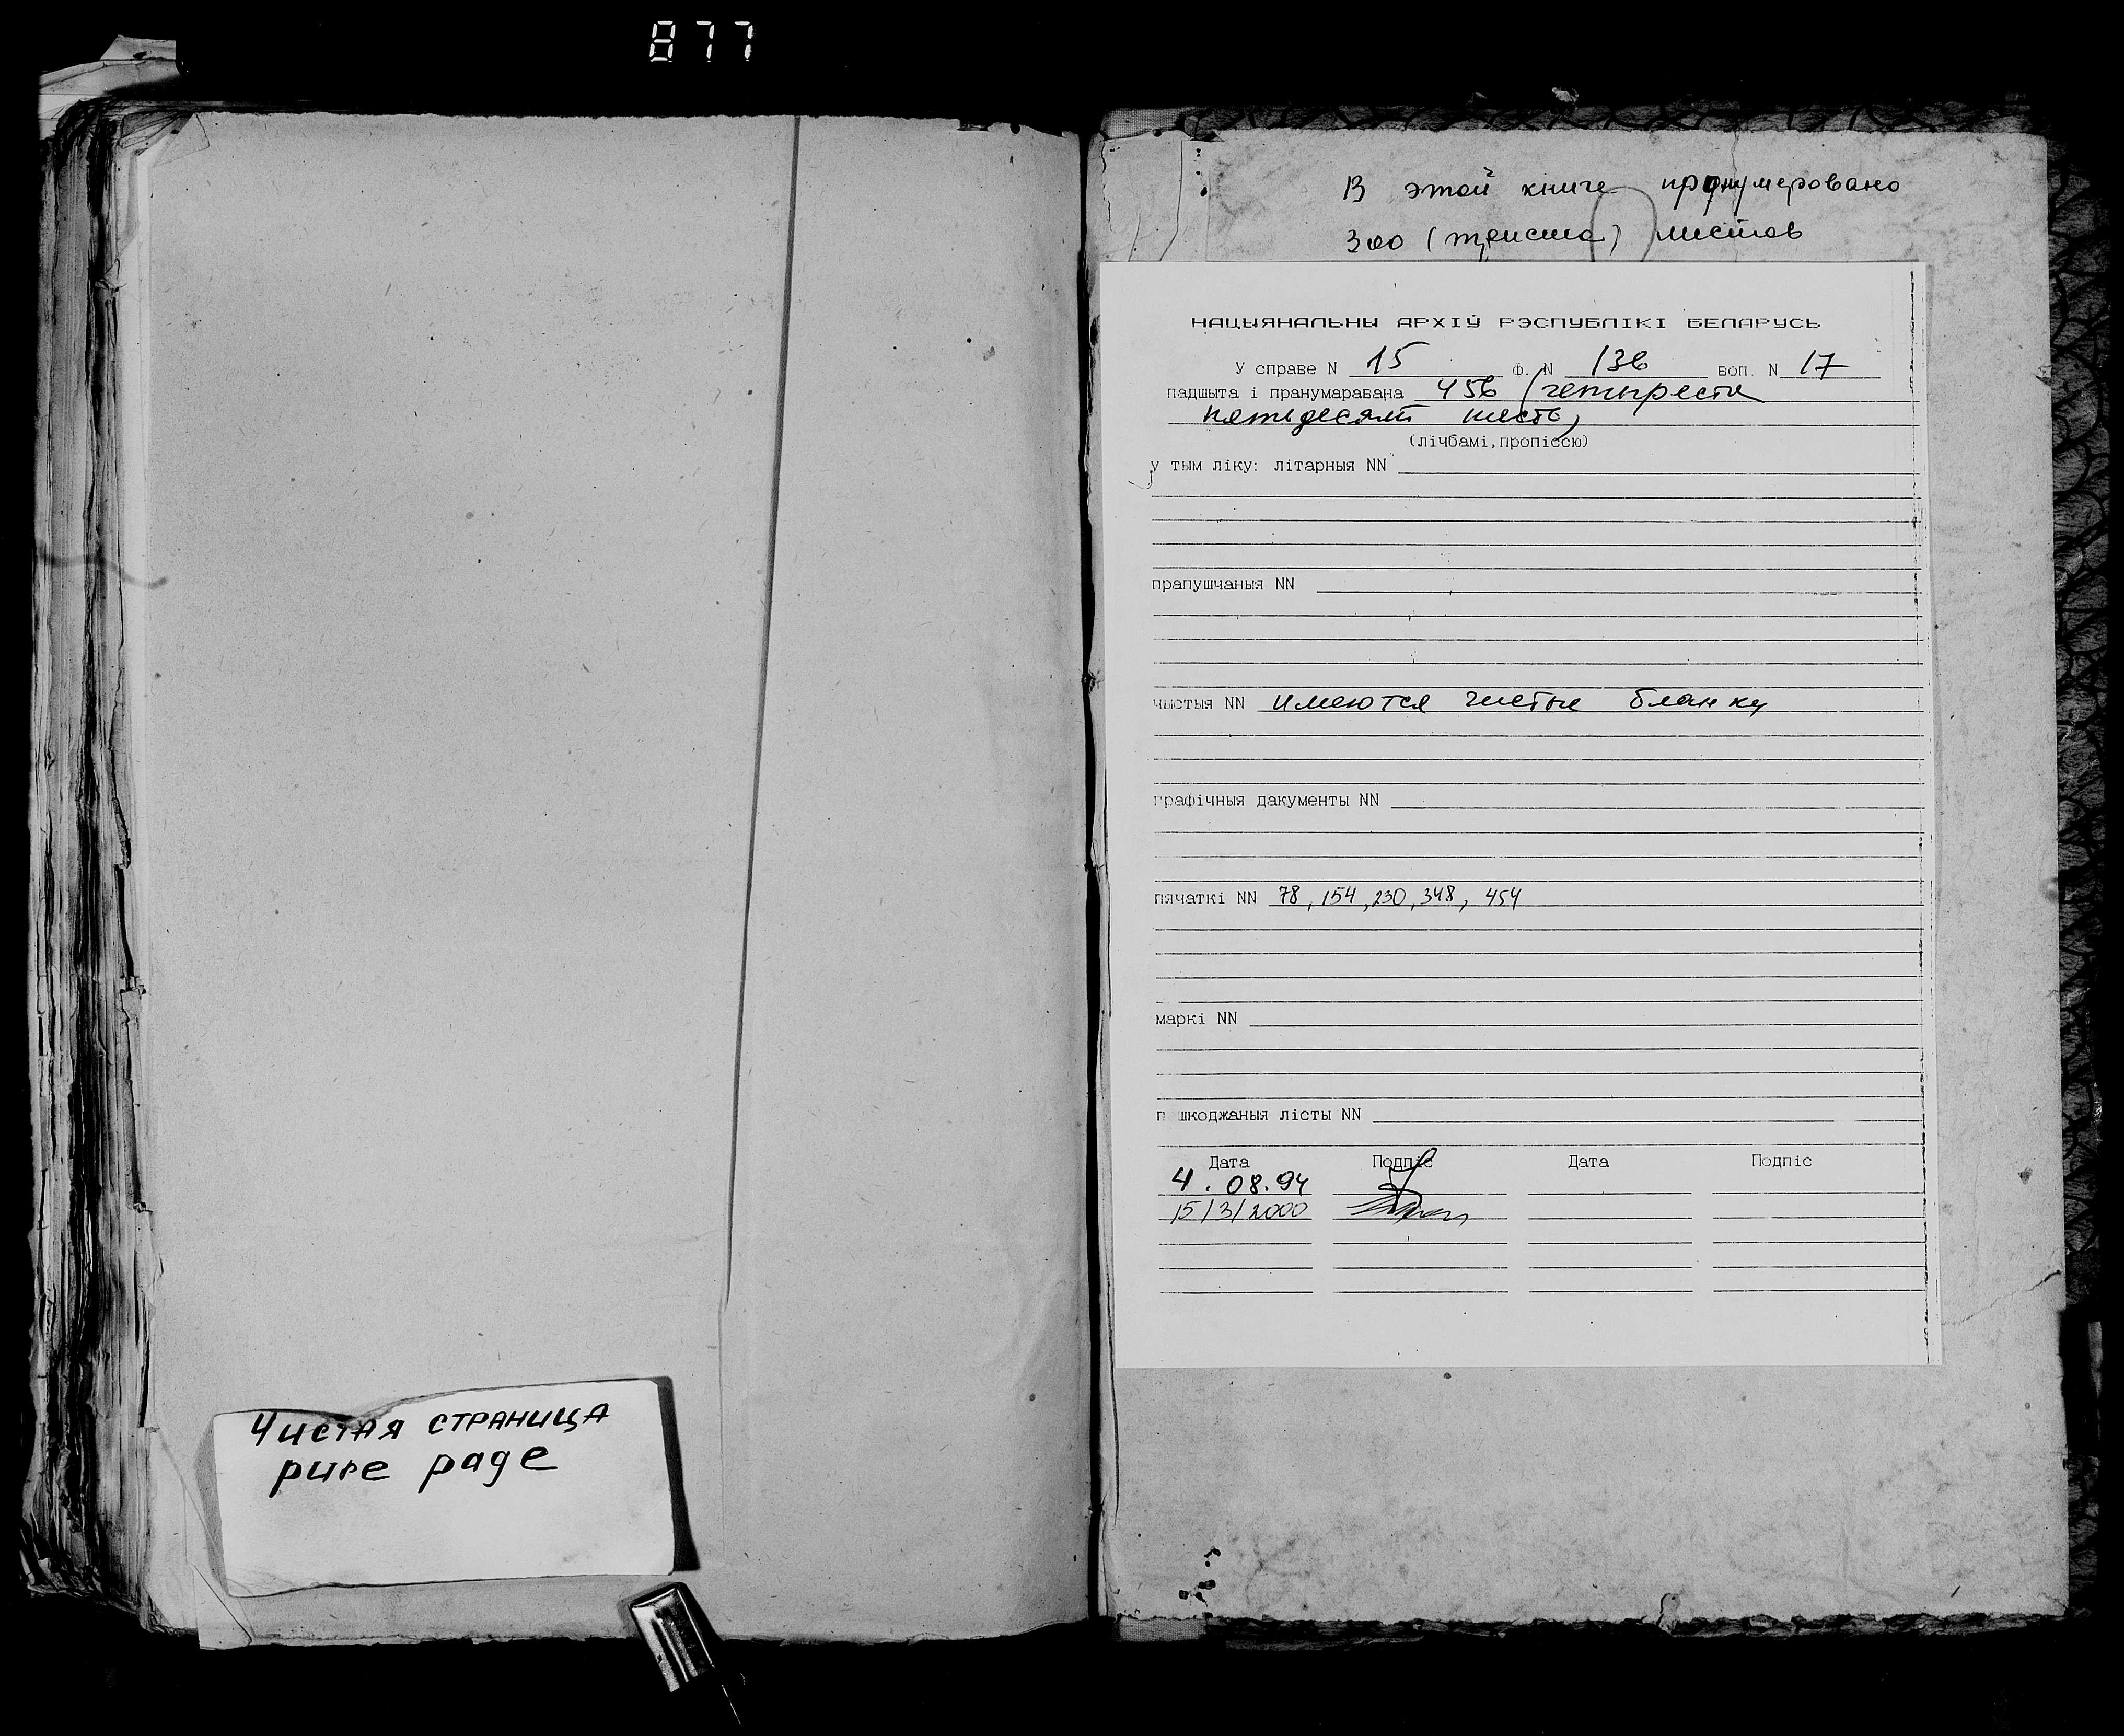 877
Чистая страница
pure page
В этой книге пронумеровано
300 (триста) листов
НАЦЫЯНАЛЬНЫ АРХІЎ РЭСПУБЛІКІ БЕЛАРУСЬ
У справе N 15 Ф. N 136 воп. N 17
падшыта і пранумаравана 456 (четыреста
пятьдесят шесть)
(лічбамі,пропіссю)
у тым ліку: літарныя NN
прапушчаныя NN
чыстыя NN имеются чистые бланки
графічныя дакументы NN
пячаткі NN 78, 154, 230, 348, 454
маркі NN
п шкоджаныя лісты NN
Дата Подпіс Дата Подпіс
4.08.94
15/3/2000